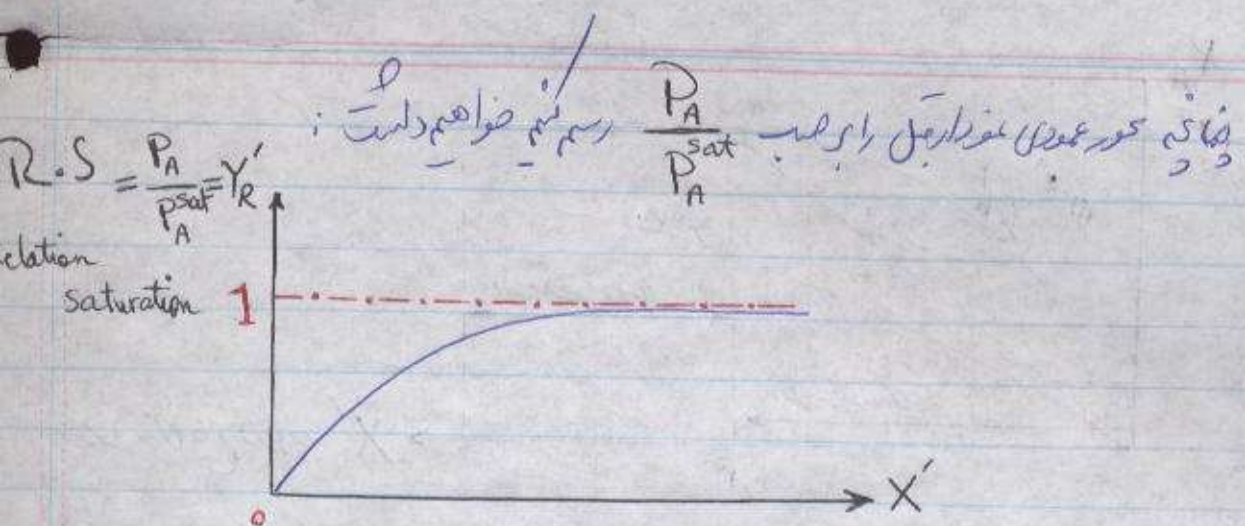 چنانچه محور عمودی نمودار قبل را برحسب P_A / P_A^sat رسم کنیم خواهیم داشت :
R.S = P_A / P_A^sat = Y'_R
elation
saturation
1
0
X'